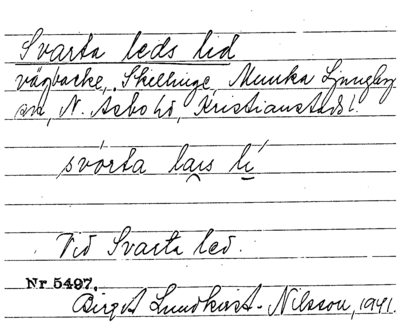 Svarta leds lid
vägbacke, Skellinge, Munka Ljungby
sn, N. Åsbo hd, Kristianstads l.
svórta lais lí
Vid Svarta led.
Nr 5497.
Birgit Lundkvist-Nilsson, 1941.